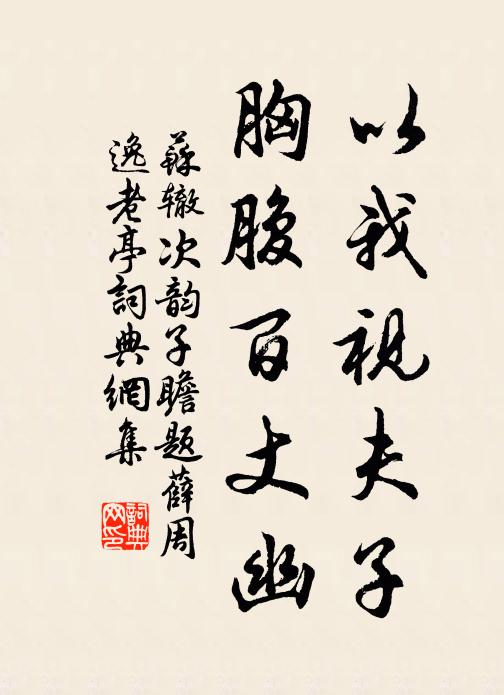 以我視夫子
胸腹百丈幽
蘇辙次韵子瞻题薛周
逸老亭詞典網集
詞典网印